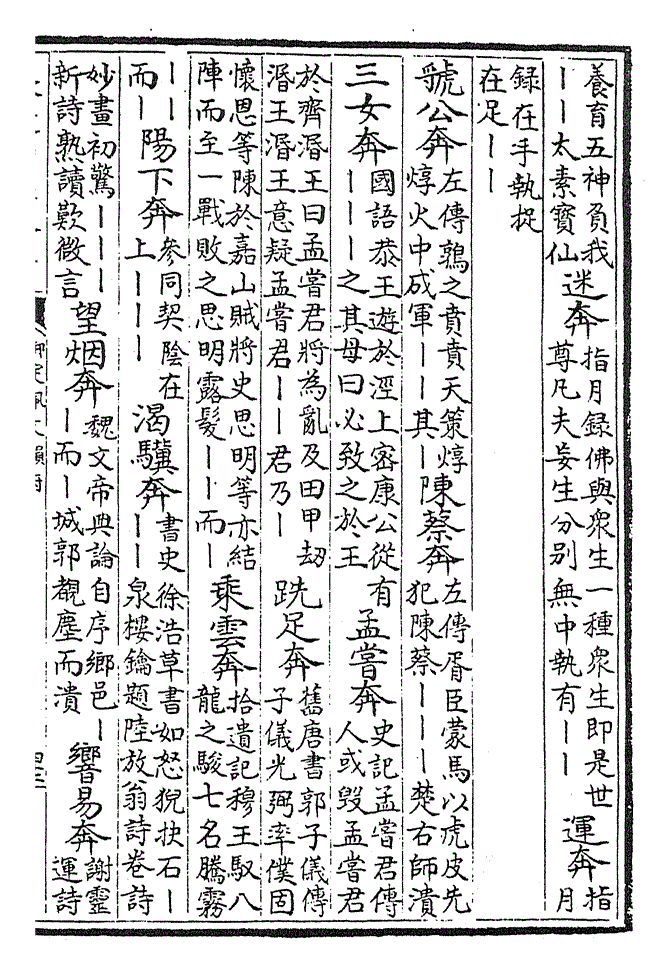 養育五神負我
｜｜太素寶仙
迷奔
指月録佛與衆生一種衆生即是世
尊凡夫妄生分別無中執有｜｜
運奔
指
月
録在手執捉
在足｜｜
虢公奔
左傳鶉之賁賁天策焞
焞火中成軍｜｜其｜
陳蔡奔
左傳胥臣蒙馬以虎皮先
犯陳蔡｜｜｜楚右師潰
三女奔
國語恭王遊於涇上密康公從有
｜｜｜之其母曰必致之於王
孟嘗奔
史記孟嘗君傳
人或毁孟嘗君
於齊湣王曰孟嘗君將為亂及田甲劫
湣王湣王意疑孟嘗君｜｜君乃｜
跣足奔
舊唐書郭子儀傳
子儀光弼率僕固
懷恩等陳於嘉山賊將史思明等亦結
陣而至一戰敗之思明露髮｜｜而｜
乘雲奔
拾遺記穆王馭八
龍之駿七名騰霧
｜｜
而｜
陽下奔
參同契陰在
上｜｜｜
渴驥奔
書史徐浩草書如怒猊抉石｜
｜｜泉樓鑰題陸放翁詩卷詩
妙畫初驚｜｜｜
新詩熟讀歎微言
望烟奔
魏文帝典論自序鄉邑｜
｜而｜城郭覩塵而潰
響易奔
謝靈
運詩